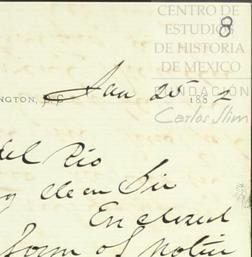 CENTRO DE
ESTUDIOS
DE HISTORIA
DE MEXICO
FUNDACIÓN
Carlos Slim
8
NGTON, D.C. Jan 25 1882
del Rio
y dear Sir
Enclosed
form of Notice